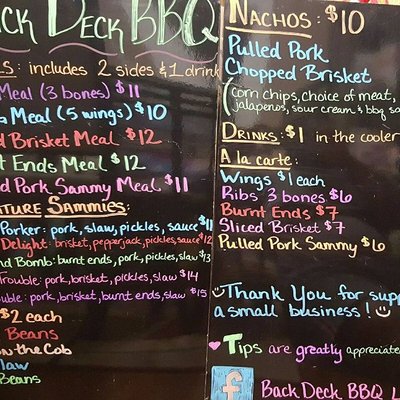 CK DECK BBQ
LS: includes 2 sides & 1 drink
Meal (3 bones) $11
Meal (5 wings) $10
d Brisket Meal $12
t Ends Meal $12
d Pork Sammy Meal $11
ATURE SAMMIES:
Porker: pork, slaw, pickles, sauce $11
Delight: brisket, pepperjack, pickles, sauce $12
nd Bomb: burnt ends, pork, pickles, slaw $13
Trouble: pork, brisket, pickles, slaw $14
ouble: pork, brisket, burnt ends, slaw $15
$2 each
Beans
on the Cob
law
Beans
NACHOS: $10
Pulled Pork
Chopped Brisket
(corn chips, choice of meat,
jalapenos, sour cream & bbq sa
DRINKS: $1 in the cooler
A la carte:
Wings $1 each
Ribs 3 bones $6
Burnt Ends $7
Sliced Brisket $7
Pulled Pork Sammy $6
Thank You for supp
a small business!
Tips are greatly appreciate
f Back Deck BBQ L